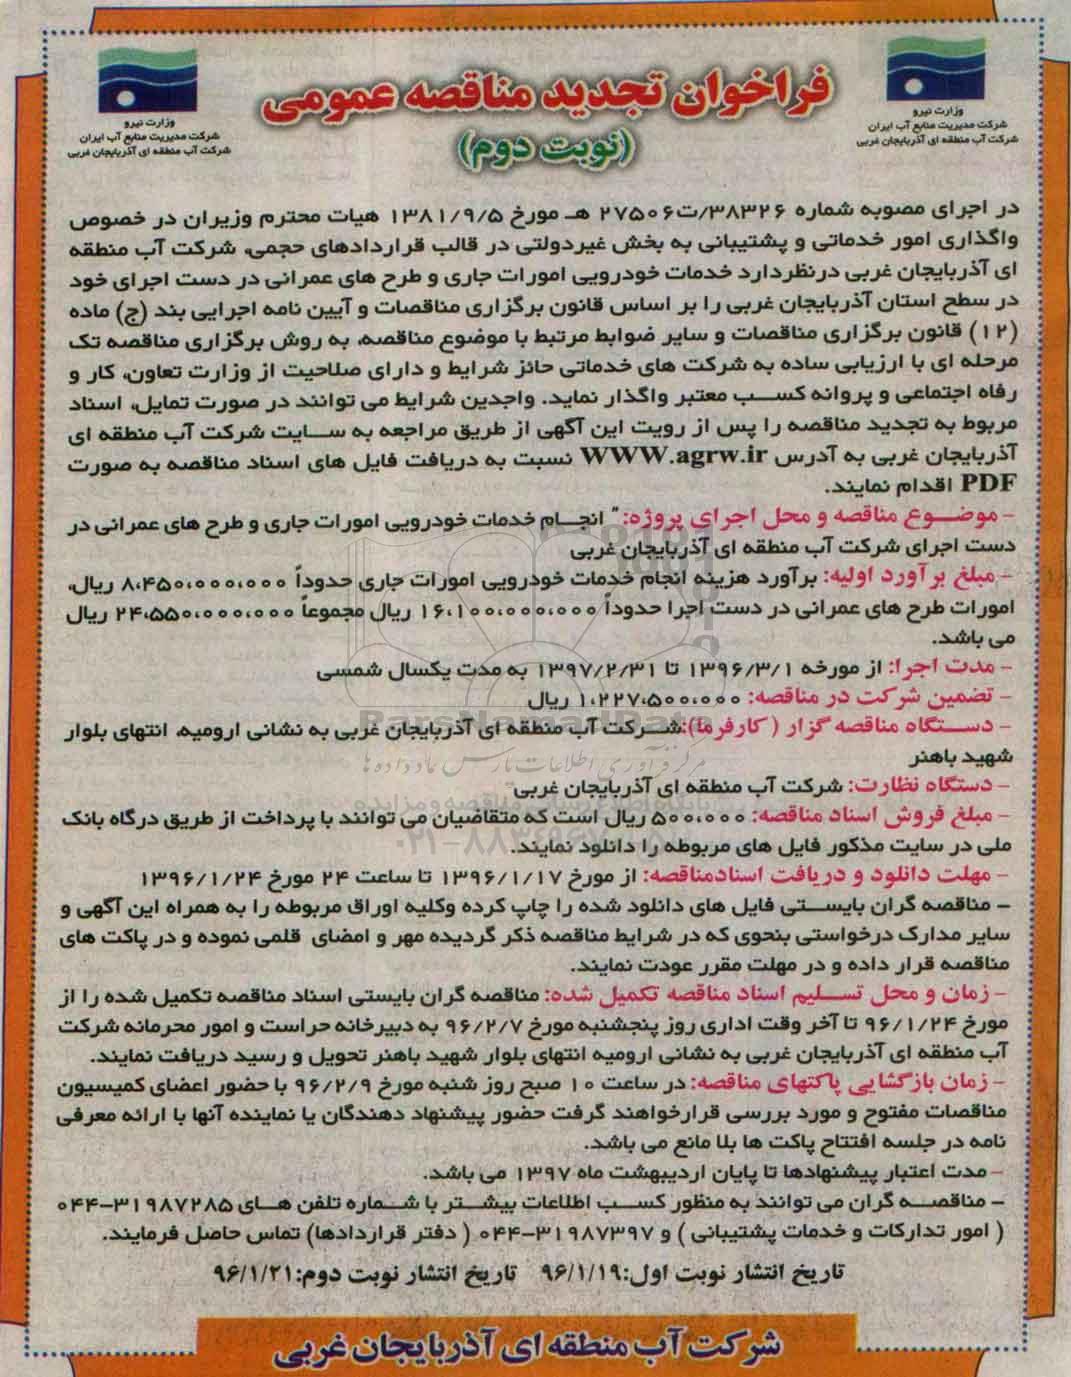 وزارت نیرو
شرکت مدیریت منابع آب ایران
شرکت آب منطقه ای آذربایجان غربی
وزارت نیرو
شرکت مدیریت منابع آب ایران
شرکت آب منطقه ای آذربایجان غربی
فراخوان تجدید مناقصه عمومی
(نوبت دوم)
در اجرای مصوبه شماره ۳۸۳۲۶/ت۲۷۵۰۶ هـ مورخ ۱۳۸۱/۹/۵ هیات محترم وزیران در خصوص
واگذاری امور خدماتی و پشتیبانی به بخش غیردولتی در قالب قراردادهای حجمی، شرکت آب منطقه
ای آذربایجان غربی درنظردارد خدمات خودرویی امورات جاری و طرح های عمرانی در دست اجرای خود
در سطح استان آذربایجان غربی را بر اساس قانون برگزاری مناقصات و آیین نامه اجرایی بند (ج) ماده
(۱۲) قانون برگزاری مناقصات و سایر ضوابط مرتبط با موضوع مناقصه، به روش برگزاری مناقصه تک
مرحله ای با ارزیابی ساده به شرکت های خدماتی حائز شرایط و دارای صلاحیت از وزارت تعاون، کار و
رفاه اجتماعی و پروانه کسب معتبر واگذار نماید. واجدین شرایط می توانند در صورت تمایل، اسناد
مربوط به تجدید مناقصه را پس از رویت این آگهی از طریق مراجعه به سایت شرکت آب منطقه ای
آذربایجان غربی به آدرس WWW.agrw.ir نسبت به دریافت فایل های اسناد مناقصه به صورت
PDF اقدام نمایند.
- موضوع مناقصه و محل اجرای پروژه: " انجام خدمات خودرویی امورات جاری و طرح های عمرانی در
دست اجرای شرکت آب منطقه ای آذربایجان غربی
- مبلغ برآورد اولیه: برآورد هزینه انجام خدمات خودرویی امورات جاری حدوداً ۸،۴۵۰،۰۰۰،۰۰۰ ریال،
امورات طرح های عمرانی در دست اجرا حدوداً ۱۶،۱۰۰،۰۰۰،۰۰۰ ریال مجموعاً ۲۴،۵۵۰،۰۰۰،۰۰۰ ریال
می باشد.
- مدت اجرا: از مورخه ۱۳۹۶/۳/۱ تا ۱۳۹۷/۲/۳۱ به مدت یکسال شمسی
- تضمین شرکت در مناقصه: ۱،۲۲۷،۵۰۰،۰۰۰ ریال
- دستگاه مناقصه گزار ( کارفرما): شرکت آب منطقه ای آذربایجان غربی به نشانی ارومیه، انتهای بلوار
شهید باهنر
- دستگاه نظارت: شرکت آب منطقه ای آذربایجان غربی
- مبلغ فروش اسناد مناقصه: ۵۰۰،۰۰۰ ریال است که متقاضیان می توانند با پرداخت از طریق درگاه بانک
ملی در سایت مذکور فایل های مربوطه را دانلود نمایند.
- مهلت دانلود و دریافت اسنادمناقصه: از مورخ ۱۳۹۶/۱/۱۷ تا ساعت ۲۴ مورخ ۱۳۹۶/۱/۲۴
- مناقصه گران بایستی فایل های دانلود شده را چاپ کرده وکلیه اوراق مربوطه را به همراه این آگهی و
سایر مدارک درخواستی بنحوی که در شرایط مناقصه ذکر گردیده مهر و امضای قلمی نموده و در پاکت های
مناقصه قرار داده و در مهلت مقرر عودت نمایند.
- زمان و محل تسلیم اسناد مناقصه تکمیل شده: مناقصه گران بایستی اسناد مناقصه تکمیل شده را از
مورخ ۹۶/۱/۲۴ تا آخر وقت اداری روز پنجشنبه مورخ ۹۶/۲/۷ به دبیرخانه حراست و امور محرمانه شرکت
آب منطقه ای آذربایجان غربی به نشانی ارومیه انتهای بلوار شهید باهنر تحویل و رسید دریافت نمایند.
- زمان بازگشایی پاکتهای مناقصه: در ساعت ۱۰ صبح روز شنبه مورخ ۹۶/۲/۹ با حضور اعضای کمیسیون
مناقصات مفتوح و مورد بررسی قرارخواهند گرفت حضور پیشنهاد دهندگان یا نماینده آنها با ارائه معرفی
نامه در جلسه افتتاح پاکت ها بلا مانع می باشد.
- مدت اعتبار پیشنهادها تا پایان اردیبهشت ماه ۱۳۹۷ می باشد.
- مناقصه گران می توانند به منظور کسب اطلاعات بیشتر با شماره تلفن های ۳۱۹۸۷۲۸۵-۰۴۴
( امور تدارکات و خدمات پشتیبانی ) و ۳۱۹۸۷۳۹۷-۰۴۴ ( دفتر قراردادها) تماس حاصل فرمایند.
تاریخ انتشار نوبت اول: ۹۶/۱/۱۹ تاریخ انتشار نوبت دوم: ۹۶/۱/۲۱
شرکت آب منطقه ای آذربایجان غربی